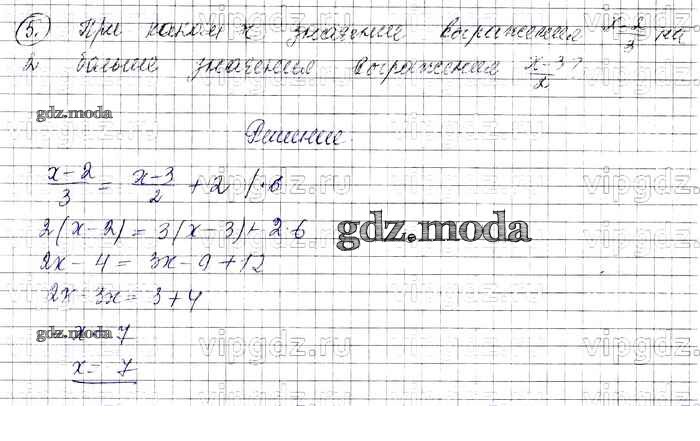 5. При каком x значение выражения x-2/3 на
2 больше значения выражения x-3/2?
gdz.moda
Решение
x-2/3 = x-3/2 + 2 /·6
vipgdz.ru
2(x-2) = 3(x-3)+2·6
gdz.moda
2x - 4 = 3x - 9 + 12
vipgdz.ru
2x - 3x = 3 + 4
gdz.moda
-x = 7
vipgdz.ru
x = -7